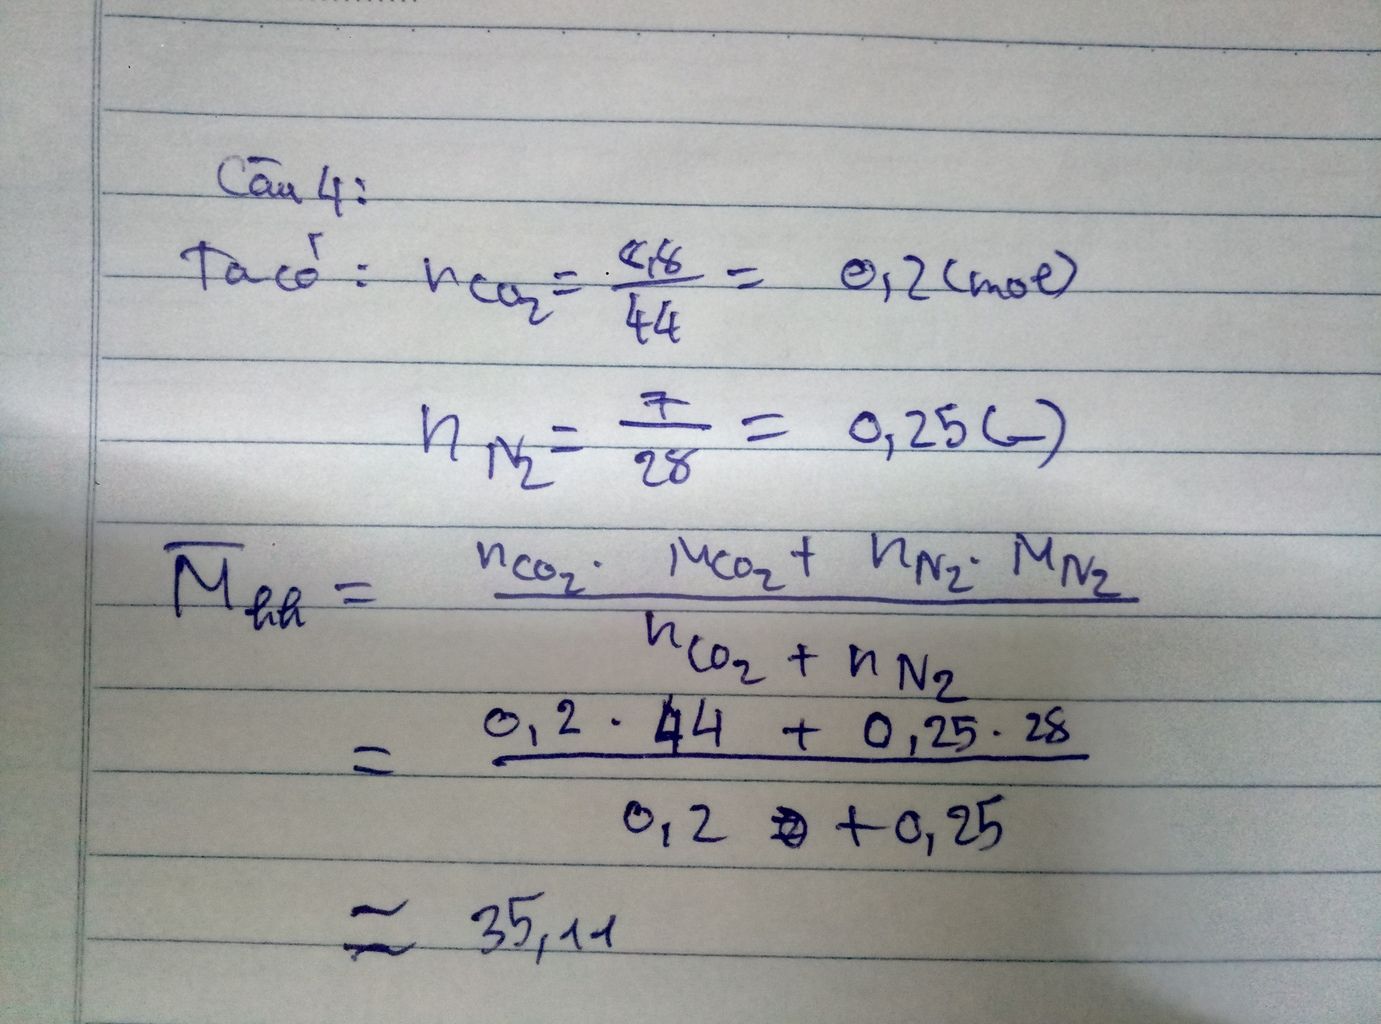 Câu 4:
Ta có: nCO2 = 8,8/44 = 0,2 (mol)
nN2 = 7/28 = 0,25 (—)
M̅hh = (nCO2 . MCO2 + nN2 . MN2)/(nCO2 + nN2)
= (0,2 . 44 + 0,25 . 28)/(0,2 + 0,25)
≃ 35,11